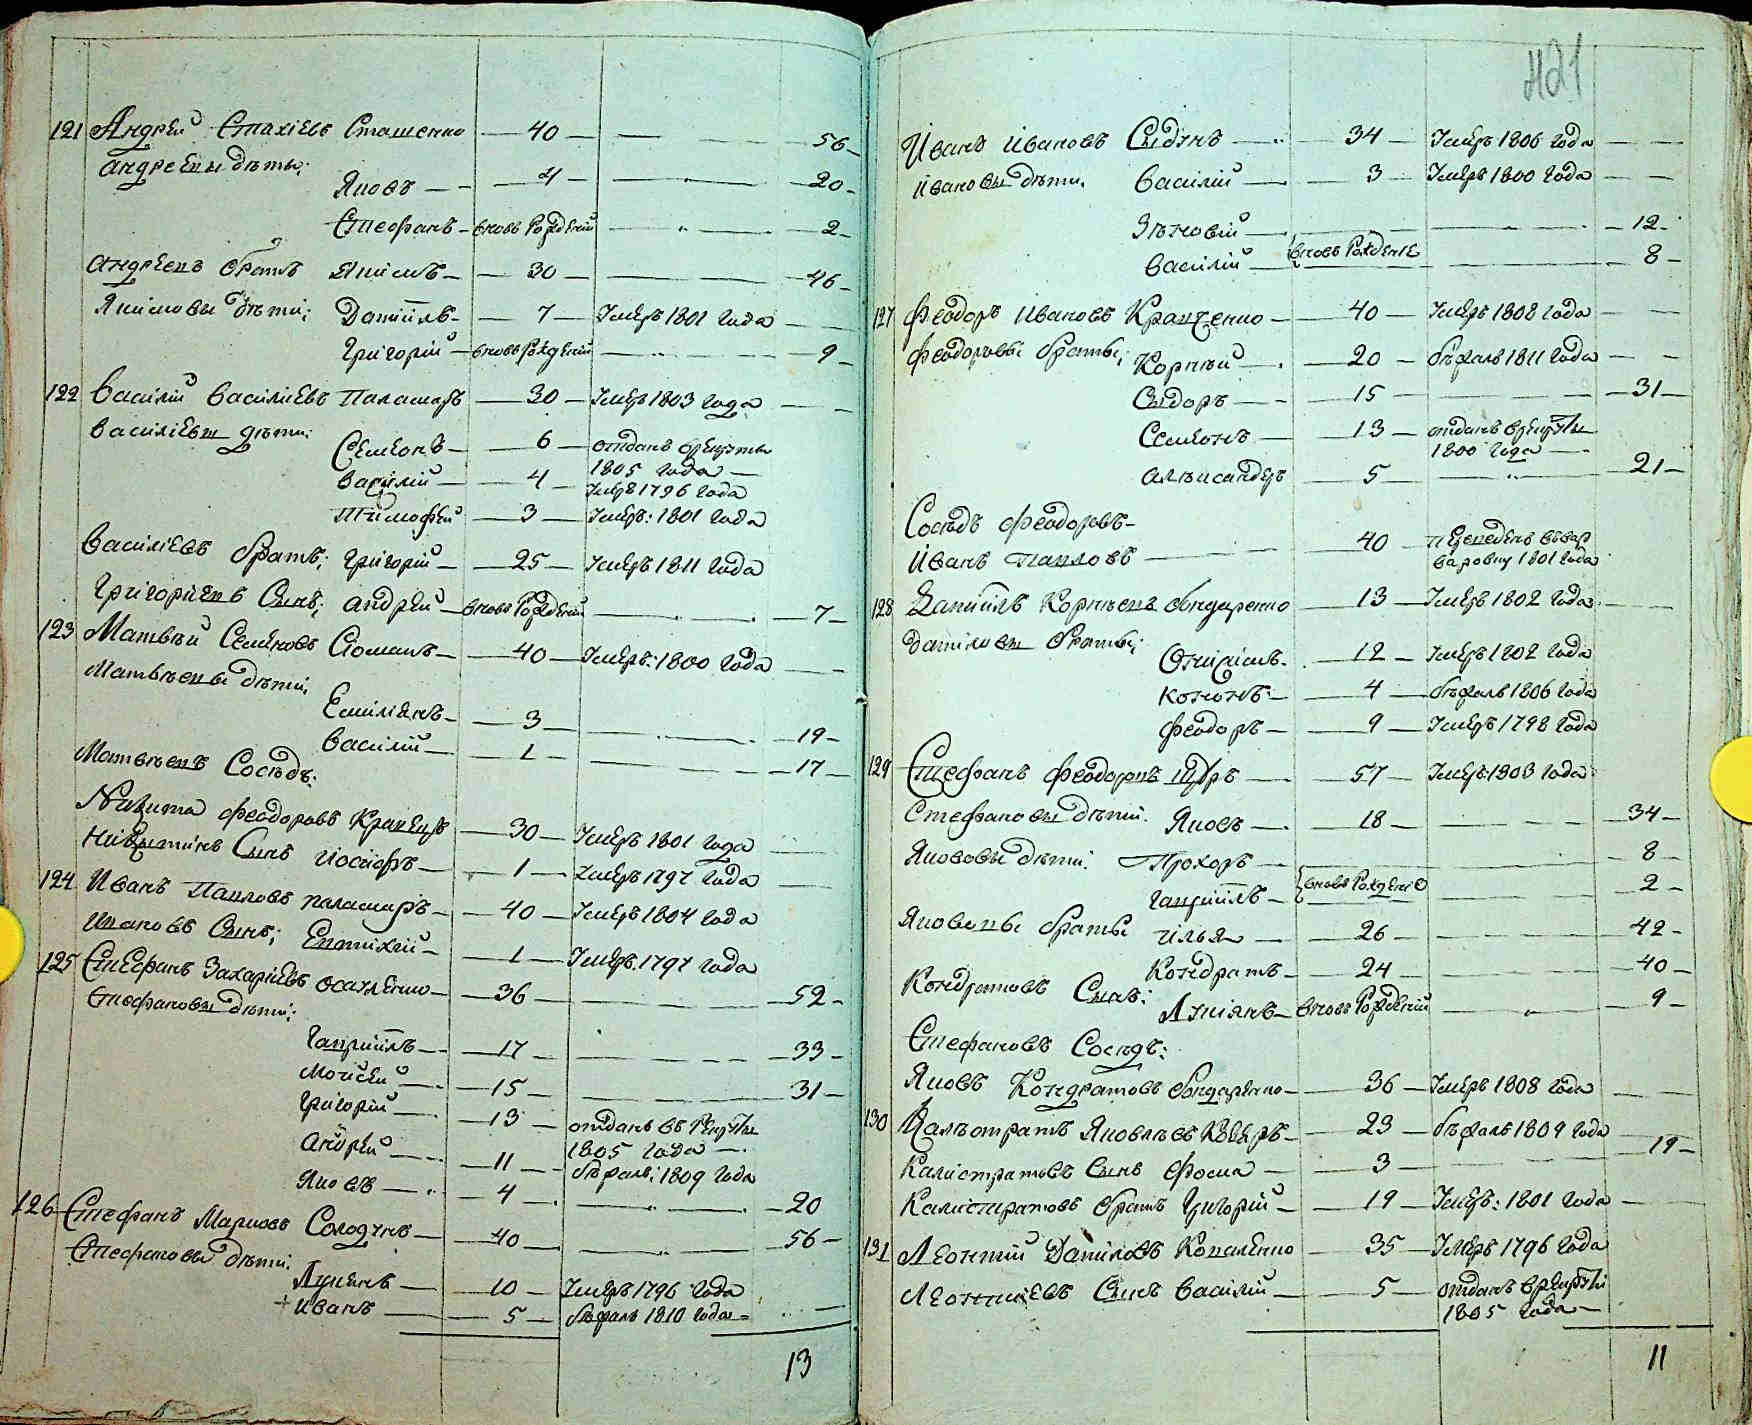 121 Андрей Стахіевъ Сташенко — 40 — — 56
андреевы дѣти;
Яковъ — 4 — — 20
Стефанъ — вновь Рожденій — 2
андреевъ братъ Якимъ — 30 — — 46
Якимовы дѣти; Даніилъ — 7 — Умеръ 1801 года
Григорій — вновь Рожденій — 9
122 Василій Василіевъ Паламаръ — 30 — Умеръ 1803 года
Василіевы дѣти:
Семенъ — 6 — отданъ врекруты
1805 года —
Василій — 4 — Умеръ 1796 года
Тимофей — 3 — Умеръ: 1801 года
Василіевъ братъ; Григорій — 25 — Умеръ 1811 года
Григоріевъ Сынъ; андрей — вновь Рожденій — 7
123 Матвѣй Семеновъ — 40 — Умеръ: 1800 года
Матвѣевы дѣти;
Емиліянъ — 3 — — 19
Василій — 1 — — 17
Матвѣевъ Сосѣдъ:
Никита Феодоровъ Кравецъ — 30 — Умеръ 1801 года
Никитинъ Сынъ Иосифъ — 1 — Умеръ 1797 года
124 Иванъ Павловъ паламаръ — 40 — Умеръ 1804 года
Ивановъ Сынъ; Евтихій — 1 — Умеръ 1797 года
125 Стефанъ Захаріевъ — 36 — — 52
Стефановы дѣти;
Гавріилъ — 17 — — 33
Мойсей — 15 — — 31
Григорій — 13 — отданъ въ Рекруты
1805 года —
андрей — 11 — февраль: 1809 года
Яковъ — 4 — — 20
126 Стефанъ Марковъ Солодунъ — 40 — — 56
Стефановы дѣти:
Лукянъ — 10 — Умеръ 1796 года
+ Иванъ — 5 — февраль 1810 года
13
421
Иванъ Ивановъ Сыдунъ — 34 — Умеръ 1806 года
Ивановы дѣти. Василій — 3 — Умеръ 1800 года
Зѣновій — 12
Василій — вновь Рожденіе — 8
127 Феодоръ Ивановъ Кравченко — 40 — Умеръ 1808 года
Феодоровы браты; Корнѣй — 20 — февраль 1811 года
Сыдоръ — 15 — — 31
Семенъ — 13 — отданъ врекруты
1800 года —
алѣксандеръ — 5 — — 21
Сосѣдъ Феодоровъ —
Иванъ Павловъ — 40 — переведенъ въвар
варовку 1801 года
128 Даніилъ Корнѣевъ бондаренко — 13 — Умеръ 1802 года
Даніловы браты;
Онисимъ — 12 — Умеръ 1802 года
Кононъ — 4 — февраль 1806 года
Феодоръ — 9 — Умеръ 1798 года
129 Стефанъ Феодоровъ — 57 — Умеръ 1803 года
Стефановы дѣти. Яковъ — 18 — — 34
Якововы дѣти. Прохоръ — 8
Гавріилъ — вновь Рожденіе — 2
Яковлевы браты Илья — 26 — — 42
Кондратъ — 24 — — 40
Кондратовъ Сынъ; Лукіянъ — вновь Рожденій — 9
Стефановъ Сосѣдъ:
Яковъ Кондратовъ бондаренко — 36 — Умеръ 1808 года
130 Калѣстратъ Яковлевъ — 23 — февраль 1809 года
Калистратовъ Сынъ Фома — 3 — — 19
Калистратовъ братъ Григорій — 19 — Умеръ: 1801 года
131 Леонтій Даниловъ Коваленко — 35 — Умеръ 1796 года
Леонтіевъ Сынъ Василій — 5 — отданъ врекруты
1805 года —
11